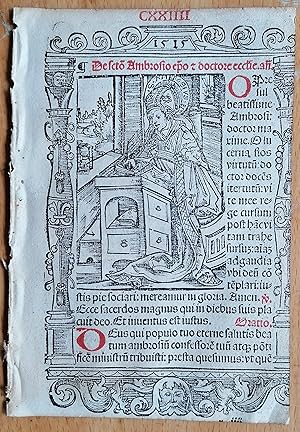 CXXIIII
1515
¶ De sctō Ambrosio epō ⁊ doctore ecclie. añ.
O Pre
sul
beatissime
Ambrosi:
doctor ma
xime. O lu
cerna flos
virtutū: do
ctor docēs
iter tutū: vi
te nice rege
cursum
post hāc vi
tam trahe
ursuʒ
ad gaudia
vbi deū cō
tēplari: iu
stis pie sociari: mereamur in gloria. Amen. ꝟ.
Ecce sacerdos magnus qui in diebus suis pla
cuit deo. Et inuentus est iustus. Oratio.
DEus qui populo tuo eterne salutis bea
tum ambrosiū confessorē tuū atqʒ pōti
ficē ministrū tribuisti: presta quesumus: vt quē